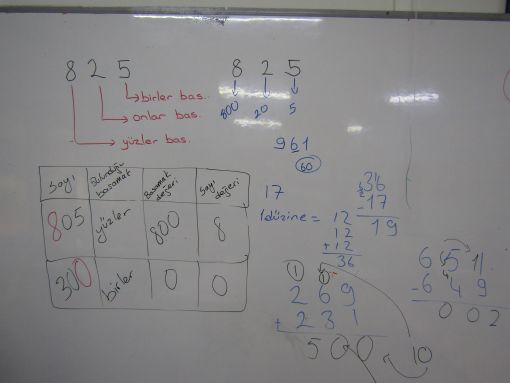 8 2 5
birler bas.
onlar bas.
yüzler bas.
8 2 5
800 20 5
961
60
Sayı Bulunduğu basamak Basamak değeri Sayı değeri
805 yüzler 800 8
300 birler 0 0
17
1 düzine = 12
12
+ 12
36
36
- 17
19
1 1
2 6 9
+ 2 3 1
5 0 0
10
6 5 1
- 6 4 9
0 0 2